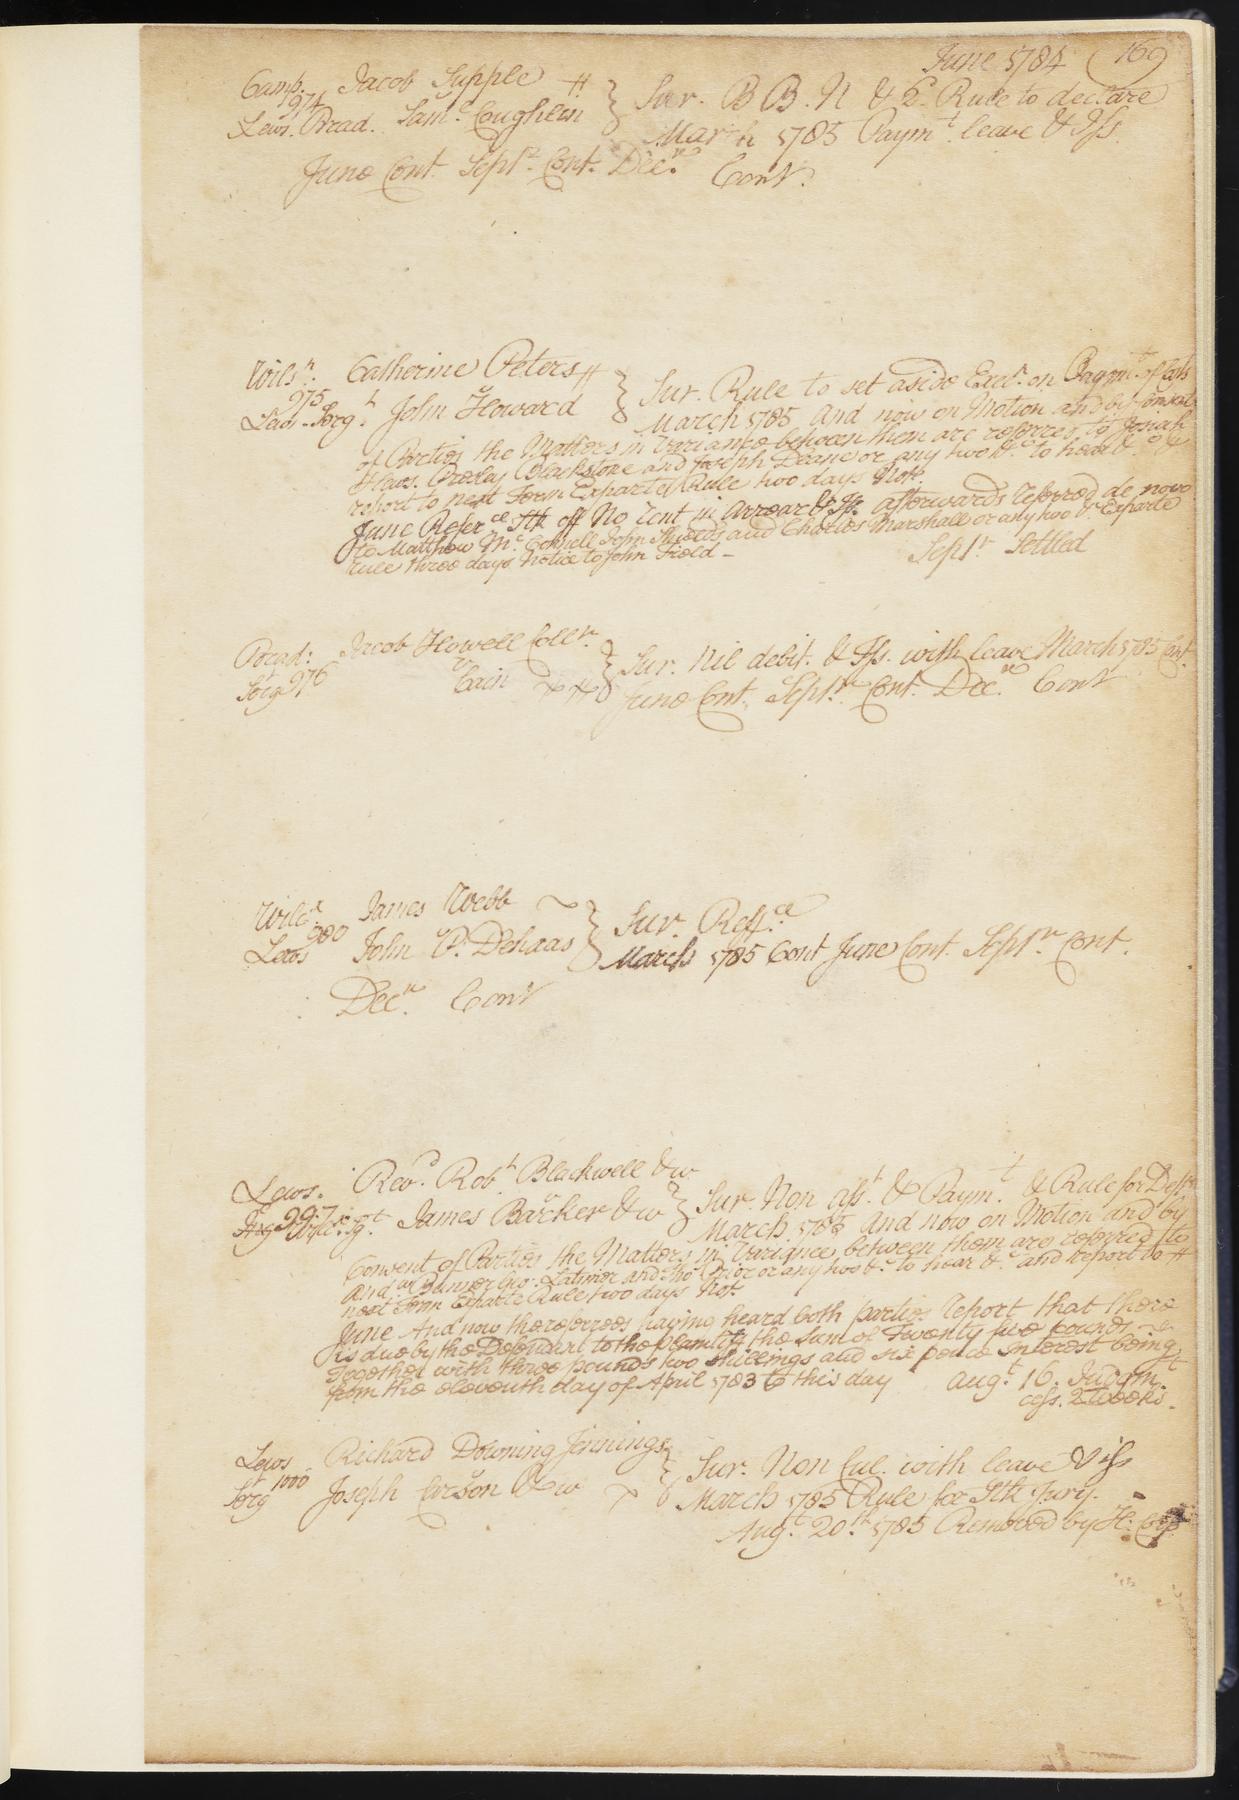 June 1784 169
Camp. Jacob Supple
974
Lews. Brad. Sam.l Coughein } Sur. B B. N & 2.d Rule to declare
March 1785 Paym.t leave & Iss.
June Cont. Sept.r Cont. Dec.r Cont.
Wils.n Catherine Peters
975
Lews. Serg.t John Howard } Sur. Rule to set aside Exec.n on Paym.t of Costs
March 1785 And now on Motion and by Consent
of Parties the Matters in Variance between them are referred to Josiah
Haws. Presley Blackstone and Joseph Deane or any two &.c to hear &.c &
report to next Term Exparte Rule two days Not.
June Refer.ce Stk off No rent in Arrear & Iss. afterwards referred de novo
to Matthew M.c Connell John Shields and Charles Marshall or any two &.c Exparte
rule three days Notice to John Field –
Sept.r Settled
Brad: Jacob Howell Coll.r
Serg 976 v Cain } Sur. Nil debit. & Iss. with leave March 1785 Cont.
June Cont. Sept.r Cont. Dec.r Cont
Wilc.x James Webb
980
Lews John P. Dehaas } Sur. Reff.ce
March 1785 Cont June Cont. Sept.r Cont.
Dec.r Cont
Lews. Rev.d Rob.t Blackwell & w
997
Ing. James Barker & w } Sur. Non ass.t & Paym.t & Rule for Def.t
March 1785 And now on Motion and by
Consent of Parties the Matters in Variance between them are referred to
And.w Bunner Geo: Latimer and Tho.s Prior or any two &.c to hear &.c and report to
next Term Exparte Rule two days Not.
June And now the referrees having heard both parties report that there
is due by the Defendant to the Plaintiff the sum of Twenty five pounds
Together with three pounds two shillings and six pence Interest being
from the eleventh day of April 1783 to this day Aug.t 16. Judgm.t
cess. 2 weeks.
Lews Richard Downing Jennings
1000
Serg v Joseph Curson & w } Sur. Non Cul. with leave & iss
March 1785 Rule for Stk Jury.
Aug.t 20.th 1785 Removed by H: Corp